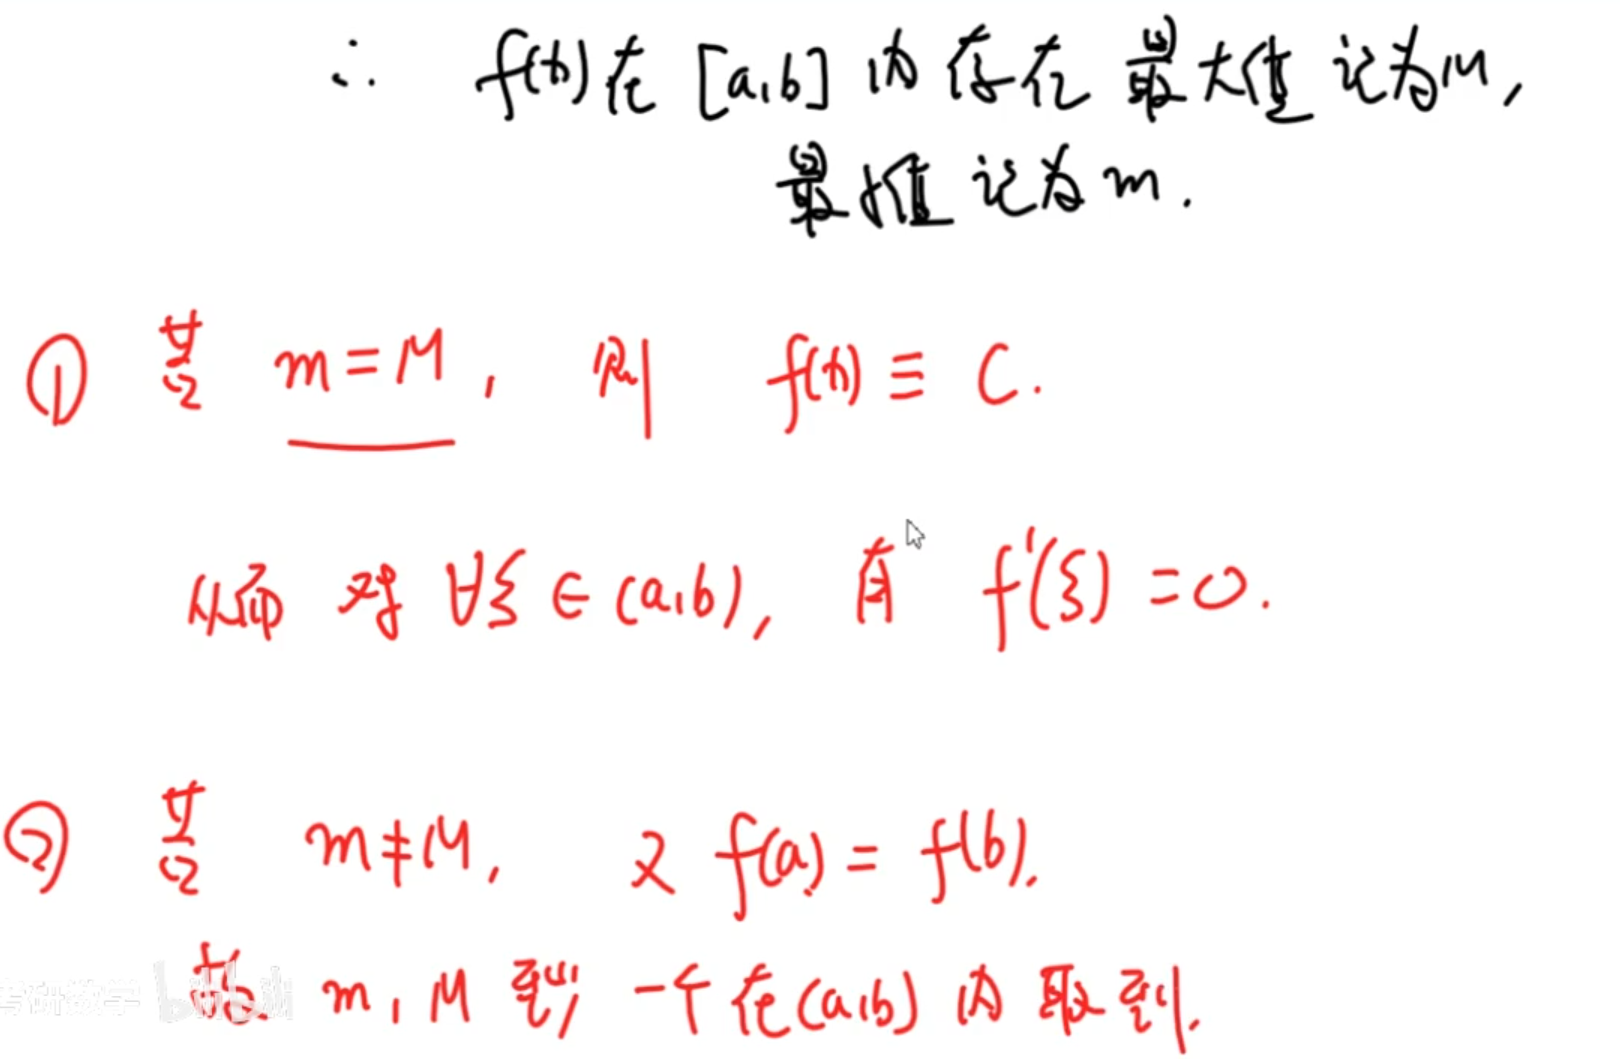 ∴ f(x)在[a,b]内存在最大值记为M,
最小值记为m.
① 若 m=M, 则 f(x)≡C.
从而 对∀ξ∈(a,b), 有 f'(ξ)=0.
② 若 m≠M, 又 f(a)=f(b).
故 m,M 至少一个在(a,b)内取到.
考研数学 bilibili